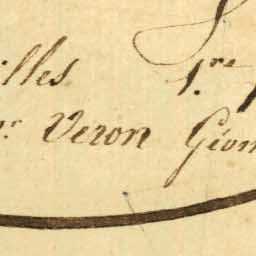 illes 1.re
r. Veron Géom